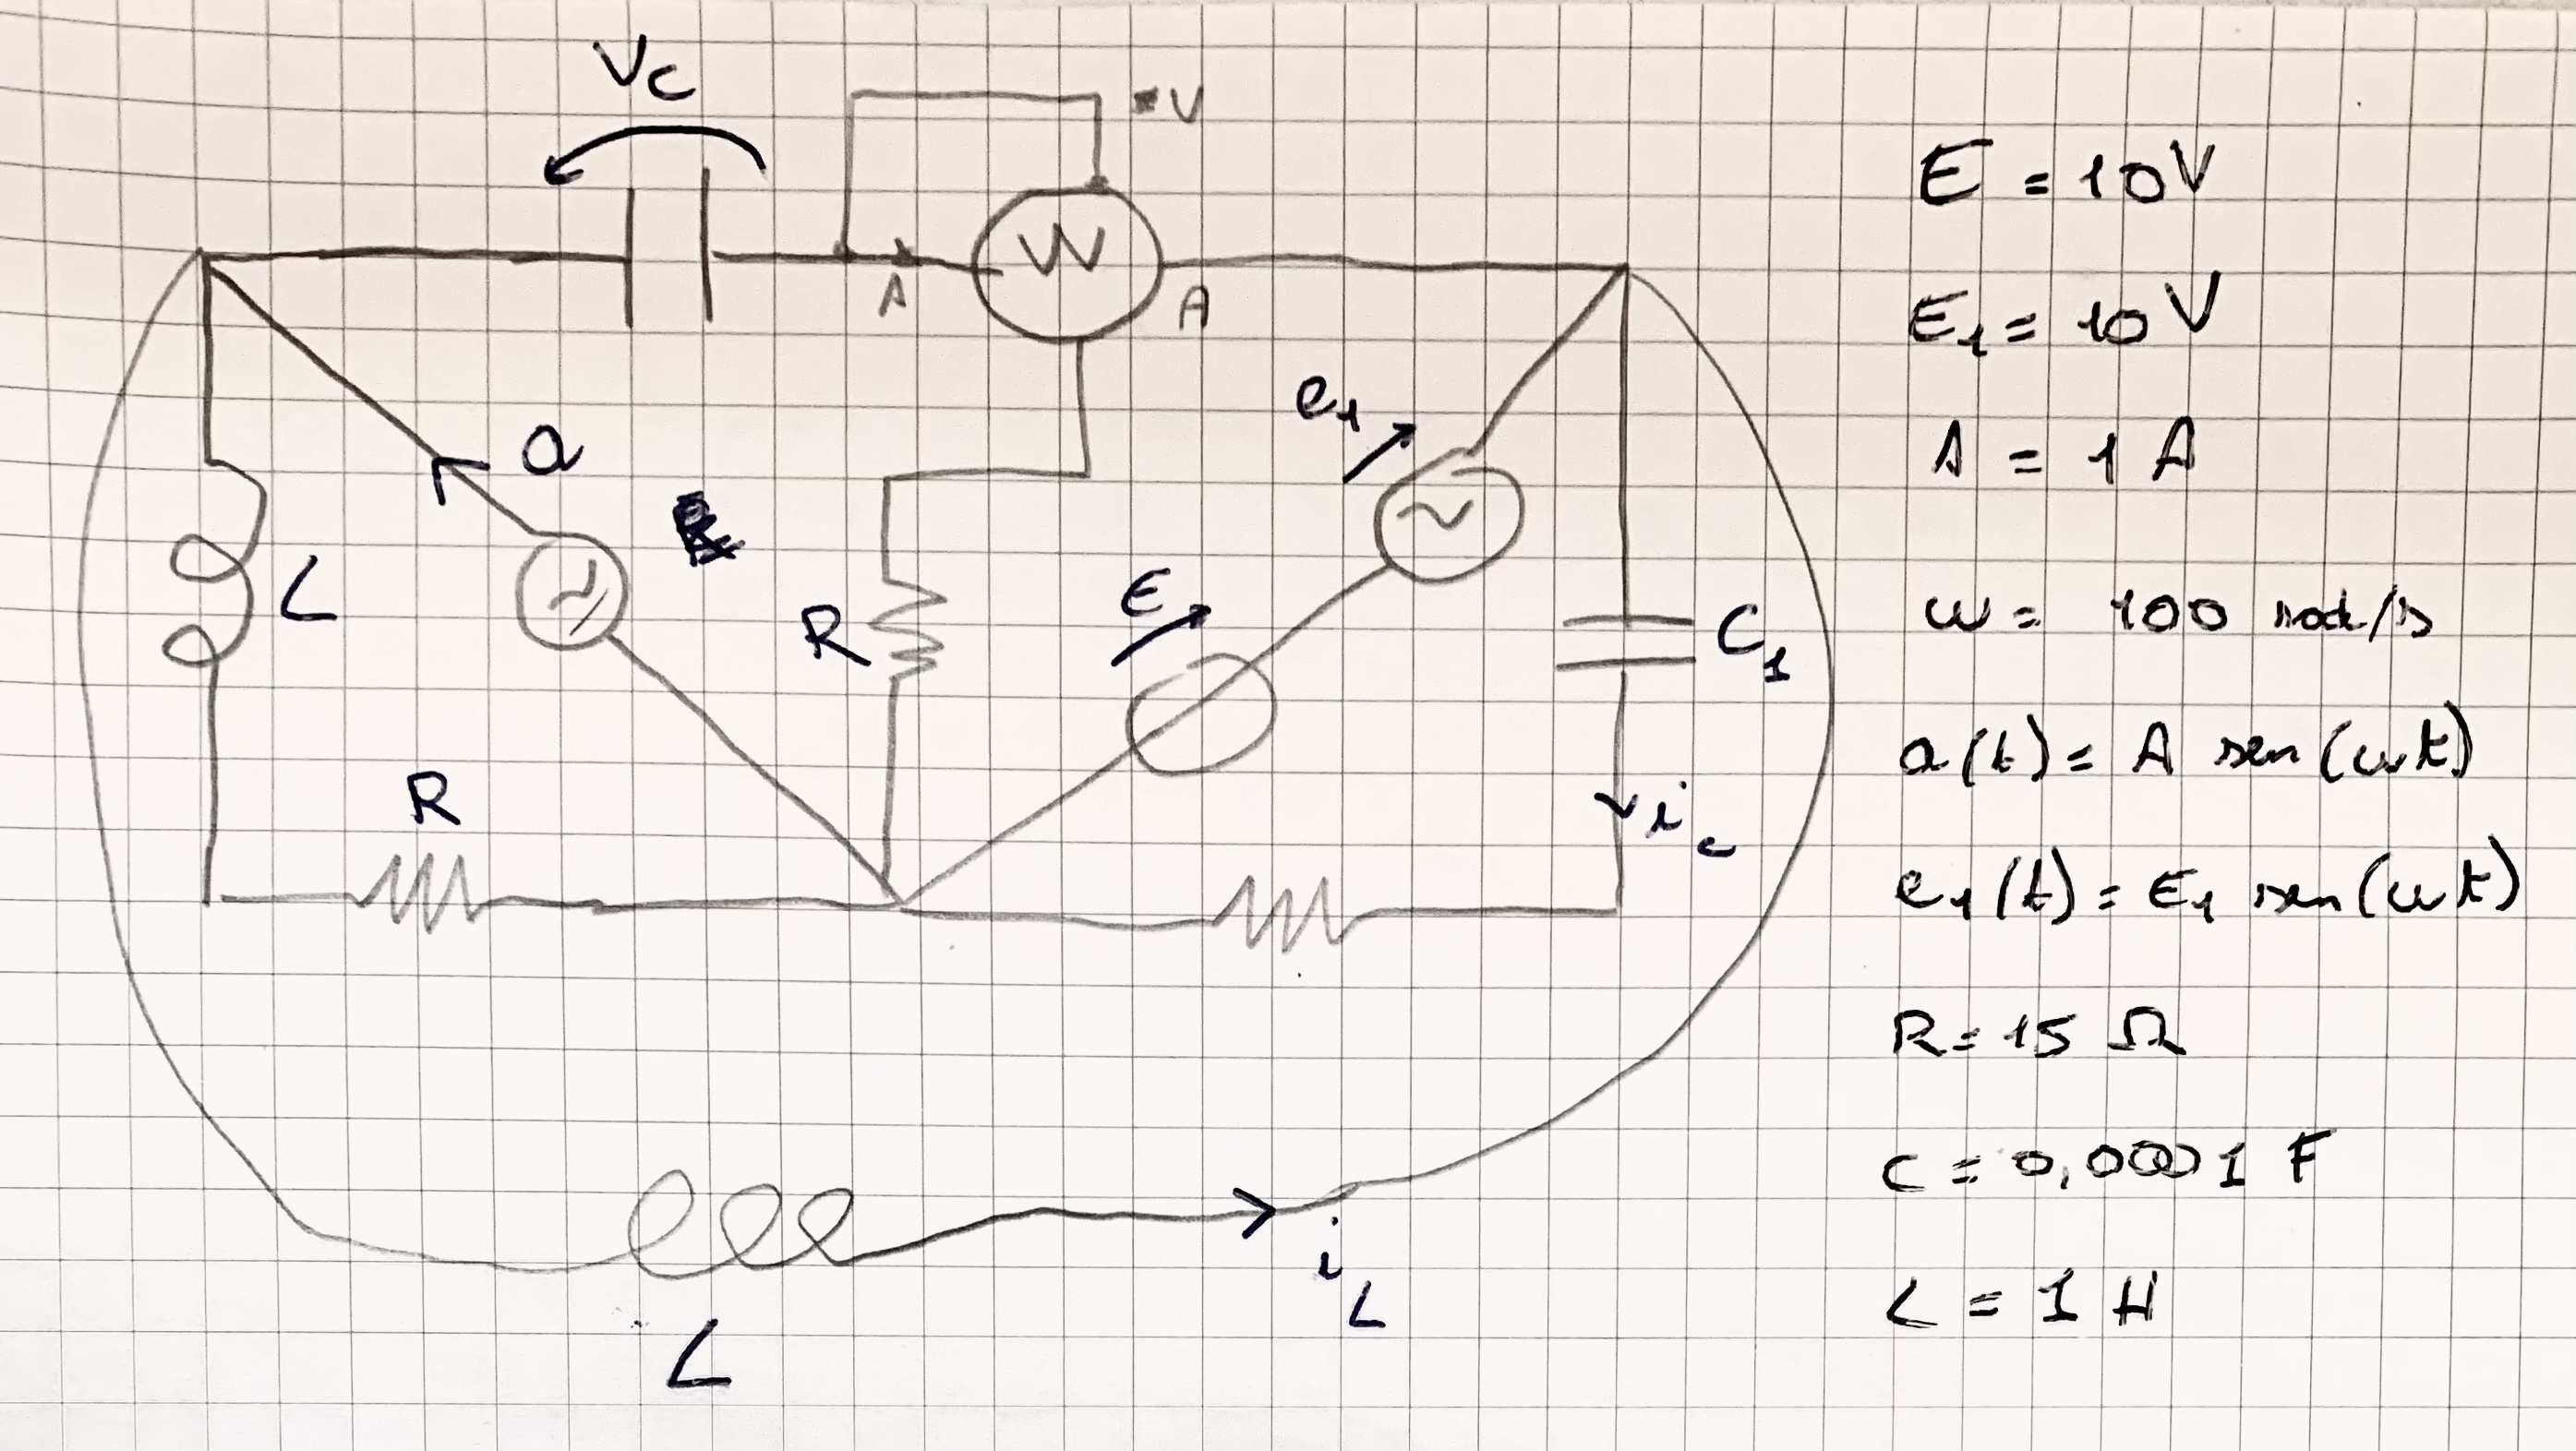 Vc
•V
W
A
A
a
e₁
E
L
R
R
C₁
i_c
i_L
L
E = 10V
E₁ = 10V
A = 1 A
ω = 100 rad/s
a(t) = A sen(ωt)
e₁(t) = E₁ sen(ωt)
R = 15 Ω
C = 0,0001 F
L = 1 H